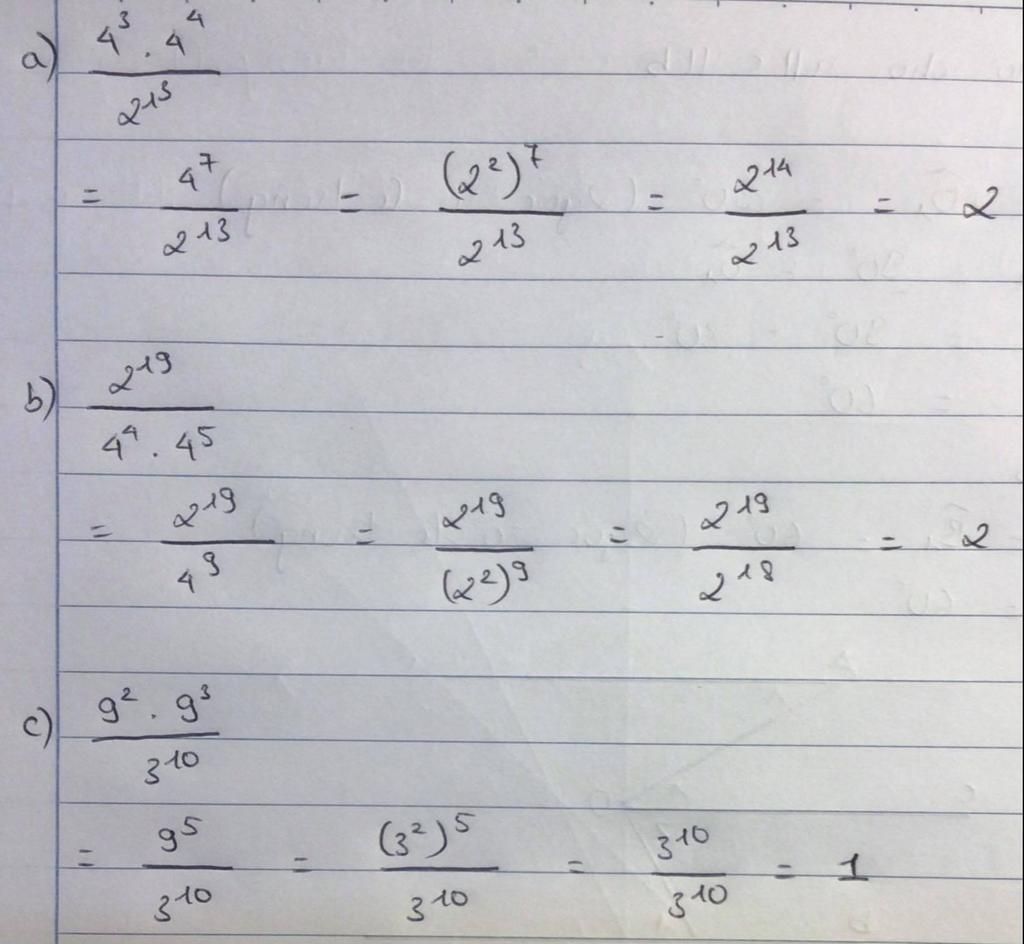 a) \frac{4^3 \cdot 4^4}{2^{13}}
= \frac{4^7}{2^{13}} = \frac{(2^2)^7}{2^{13}} = \frac{2^{14}}{2^{13}} = 2
b) \frac{2^{19}}{4^4 \cdot 4^5}
= \frac{2^{19}}{4^9} = \frac{2^{19}}{(2^2)^9} = \frac{2^{19}}{2^{18}} = 2
c) \frac{9^2 \cdot 9^3}{3^{10}}
= \frac{9^5}{3^{10}} = \frac{(3^2)^5}{3^{10}} = \frac{3^{10}}{3^{10}} = 1